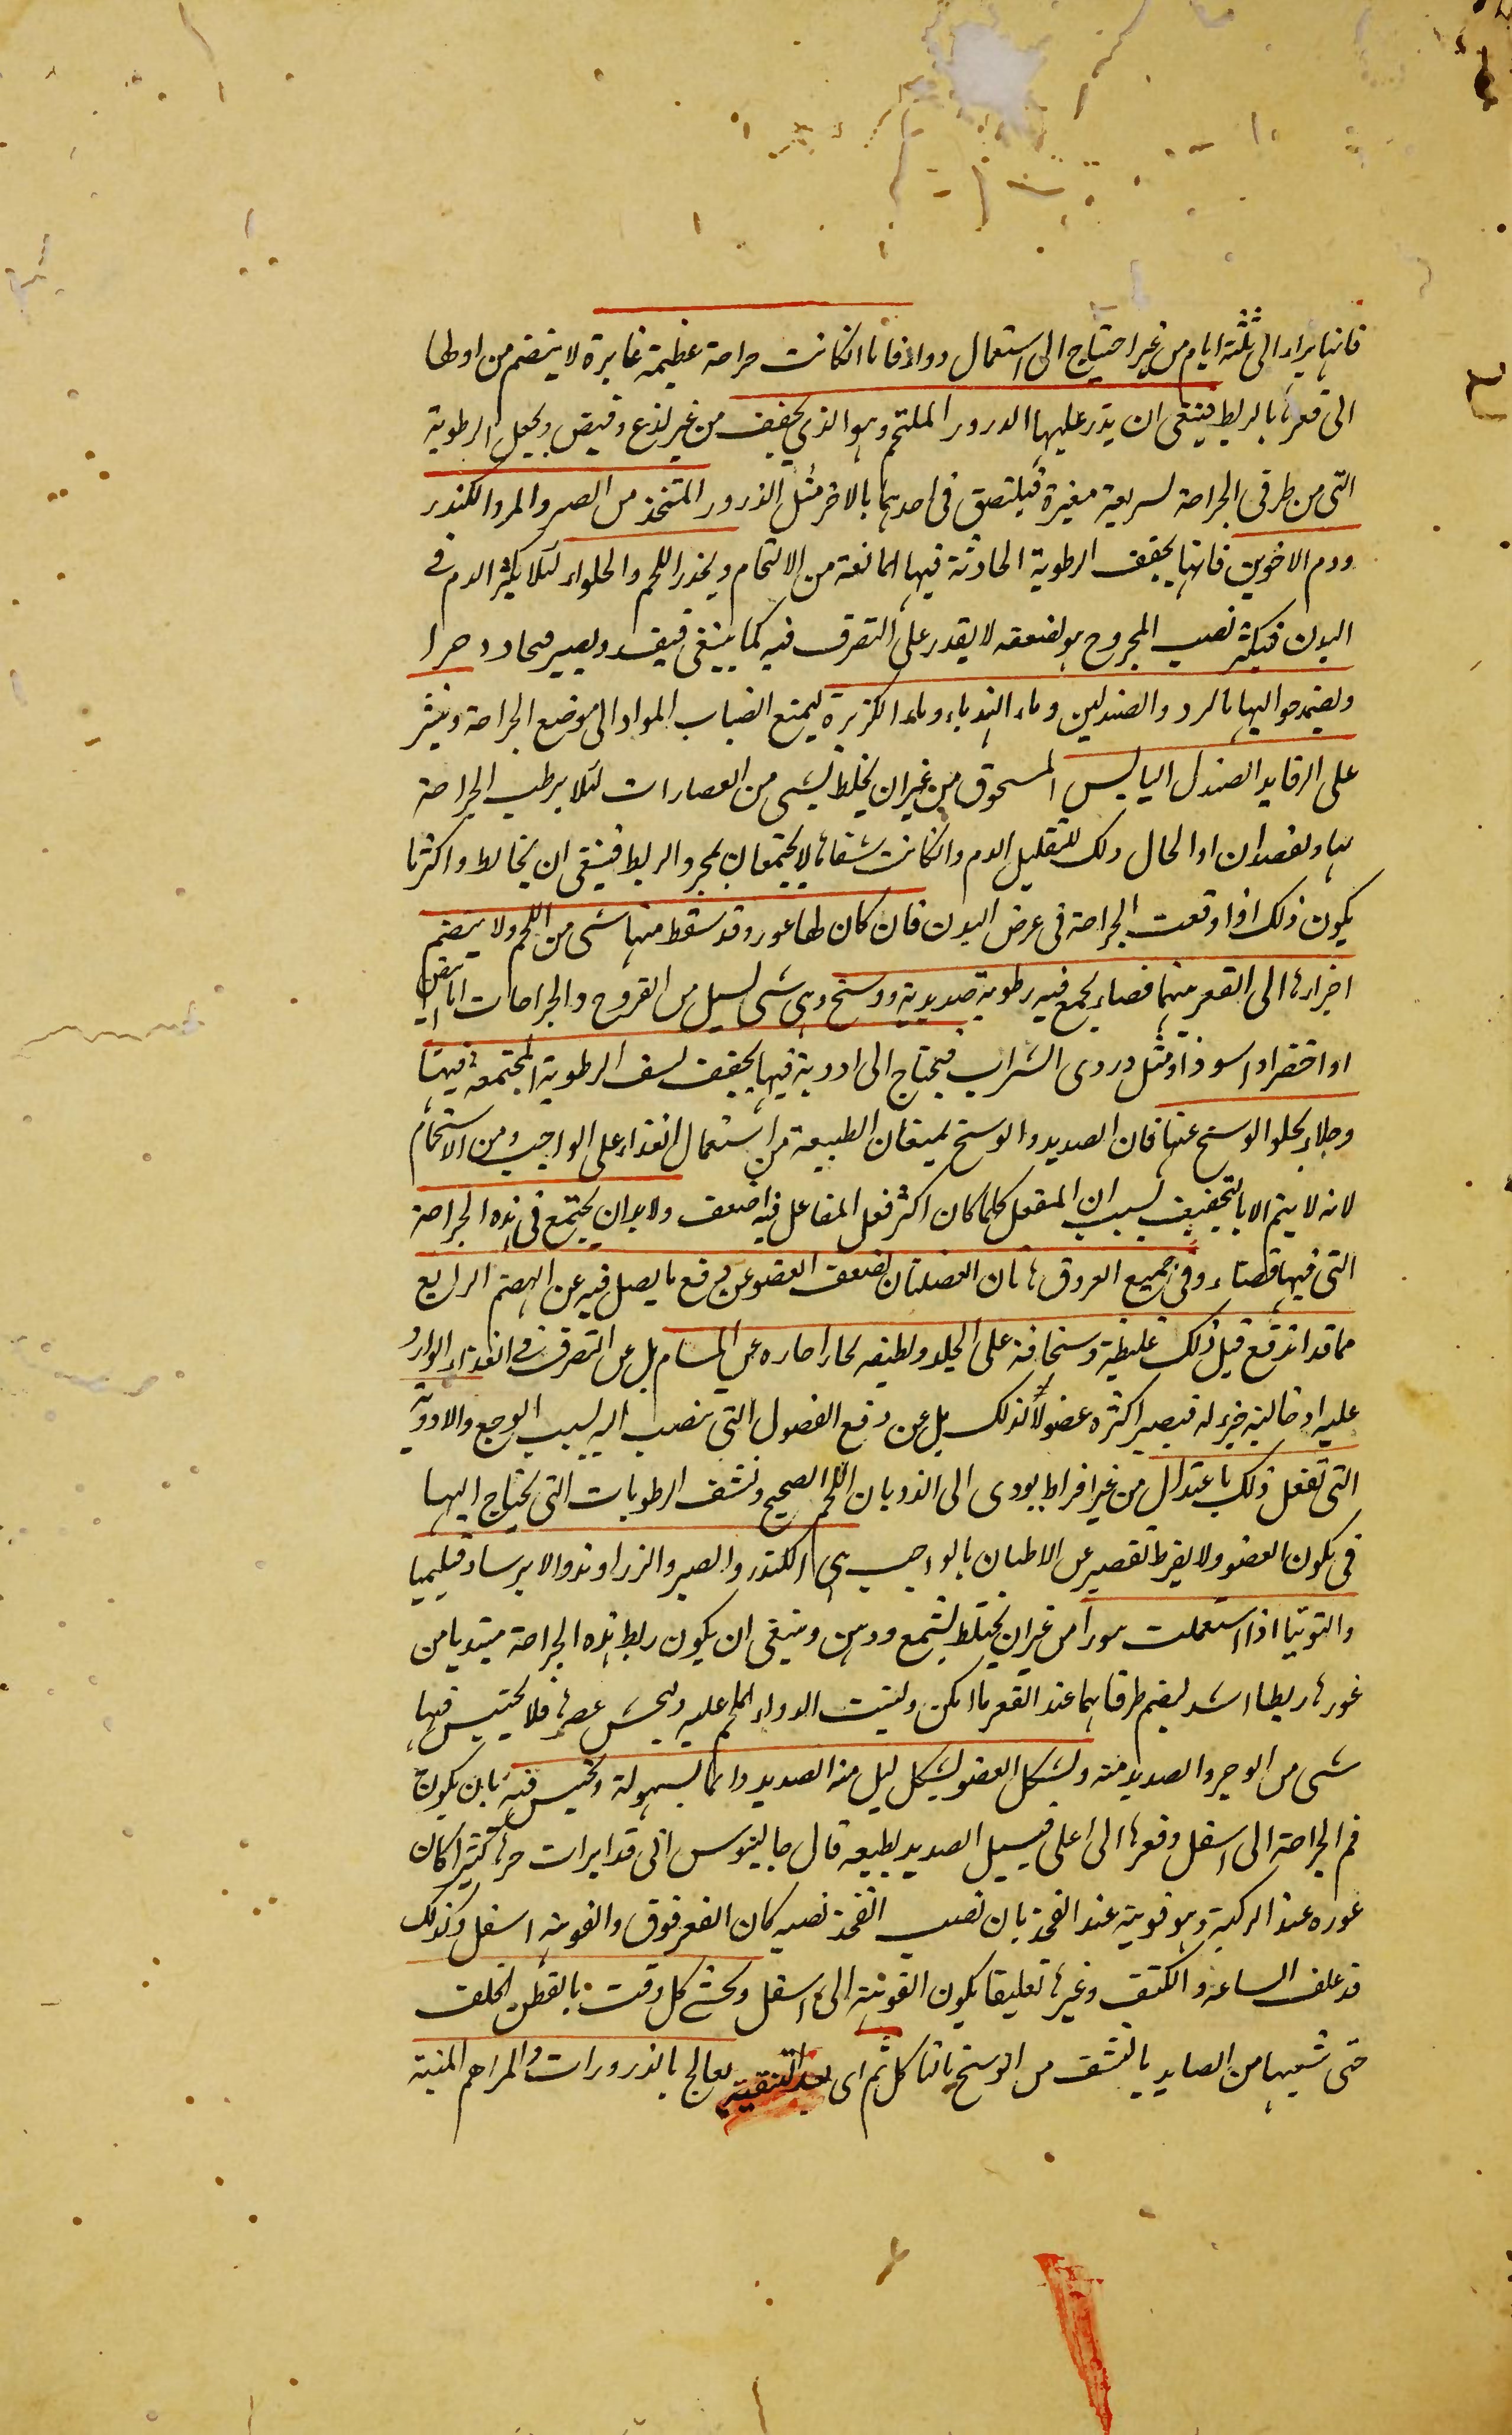 فانها يبراء الى ثلثة ايام من غير احتياج الى استعمال دواء فاما اذا كانت جراحة عظيمة غايرة لا ينضم من اولها
الى قعرها بالربط فينبغى ان يذر عليها الذرور الملتحم وهو الذي يجفف من غير لذع وقبض ويجعل الرطوبة
التى من طرفى الجراحة لسريعة مغيرة فيلتصق فى احدهما بالاخر مثل الذرور المتخذ من الصبر والمر والكندر
ودم الاخوين فانها يجفف الرطوبة الحادثة فيها المانعة من الالتحام ويحذر اللحم والحلواء لئلا يكثر الدم فى
البدن فيكثر نصيب المجروح وهو لضعفه لا يقدر على التصرف فيه كما ينبغى فيفسد ويصير
ويضمد حواليها بالمبرد والصندلين وماء الهندباء وماء الكزبرة ليمنع انصباب المواد الى موضع الجراحة وينثر
على الرفايد الصندل اليابس المسحوق من غير ان يخلط بشى من العصارات لئلا يرطب الجراحة
بها ويفصد ان اوالحال ذلك لتقليل الدم وان كانت شفتاها لا يجتمعان بمجرد الربط فينبغى ان يخالط واكثر ما
يكون ذلك اذا وقعت الجراحة فى عرض البدن فان كان لها غور وقد سقط منها شى من اللحم ولا ينضم
اجزاءها الى القعر منها فضاء يجمع فيه رطوبة صديدية ووسخ وهى شى يسيل من القروح والجراحات اما ابيض
او اخضر او اسود او مثل دردى الشراب فيحتاج الى ادوية فيها يجفف لنشف الرطوبة المجتمعة فيها
وجلاء يجلو الوسخ عنها فان الصديد والوسخ يمنعان الطبيعة من استعمال الغذاء على الواجب ومن الالتحام
لانه لا يتم الا بالتجفيف لسبب ان المنفعل كلما كان اكثر فعل الفاعل فيه اضعف ولابد ان يجتمع فى هذه الجراحة
التى فيها فضاء وفى جميع القروق هاتان الفضلتان لضعف العضو عن دفع ما يصل فيه عن الهضم الرابع
مما قد اندفع قبل ذلك غليظة وسخافة على الجلد ولطيفه بخارا حاره عن المسام بل عن التصرف فى الغذاء الوارد
عليه فيصير اكثره فضولا لذلك بل عن دفع الفضول التى ينصب اليه لسبب الوجع والادوية
التى تفعل ذلك باعتدال من غير افراط يودى الى الذوبان اللحم الصحيح ونشف الرطوبات التى يحتاج اليها
فى يكون العضو ولا يفرط تقصير عن بالواجب هى الكندر والصبر والزراوند والايرسا وقليميا
والتوتيا اذا استعملت من غير ان يختلط بشمع ودهن وينبغى ان يكون ربط هذه الجراحة مبتديا من
غورها ربطا اشد ليضم طرفاهما عند القعر ما امكن وليثبت الدواء الملحم عليه فلا يحتبس فيها
شى من الوضر والصديد منه ويشكل العضو بشكل يسيل منه الصديد دائما بسهولة ويحبس فيه بان يكون
فم الجراحة الى اسفل وقعرها الى اعلى فيسيل الصديد بطبعه قال جالينوس انى قد ابرات جرحا كثيرا كان
غوره عند الركبة وهو فوهته عند الفخذ بان نصب الفخذ نصبه كان القعر فوق والفوهة اسفل وكذلك
قد علق الساعد والكتف وغيرها تعليقا يكون الفوهة الى اسفل ويحشى كل وقت بالقطن الخلق
حتى ينقيها من الصديد بالنشف من الوسخ بالتاكل ثم اى بعد التنقية يعالج بالذرورات والمراهم المنبتة